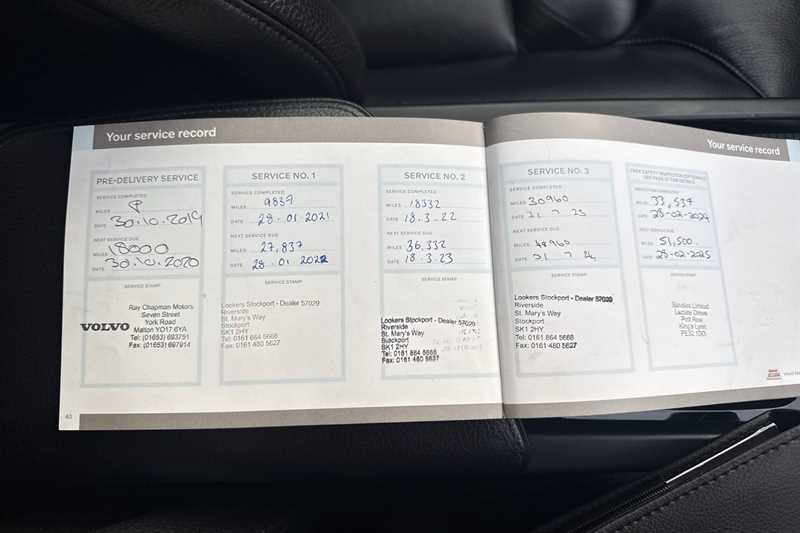 Your service record
PRE-DELIVERY SERVICE
SERVICE COMPLETED
MILES
DATE 30.10.2019
NEXT SERVICE DUE
MILES 18000
DATE 30.10.2020
SERVICE STAMP
VOLVO
Ray Chapman Motors
Seven Street
York Road
Malton YO17 6YA
Tel: (01653) 693751
Fax: (01653) 697914
40
SERVICE NO. 1
SERVICE COMPLETED
MILES 9837
DATE 28-01-2021
NEXT SERVICE DUE
MILES 27,837
DATE 28-01-2022
SERVICE STAMP
Lookers Stockport - Dealer 57029
Riverside
St. Mary's Way
Stockport
SK1 2HY
Tel: 0161 864 5668
Fax: 0161 480 5627
SERVICE NO. 2
SERVICE COMPLETED
MILES 18332
DATE 18-3-22
NEXT SERVICE DUE
MILES 36,332
DATE 18-3-23
SERVICE STAMP
Lookers Stockport - Dealer 57029
Riverside
St. Mary's Way
Stockport
SK1 2HY
Tel: 0161 864 5668
Fax: 0161 480
Your service record
SERVICE NO. 3
SERVICE COMPLETED
MILES 30960
DATE 21 7 23
NEXT SERVICE DUE
MILES 48960
DATE 21 7 24
SERVICE STAMP
Lookers Stockport - Dealer 57029
Riverside
St. Mary's Way
Stockport
SK1 2HY
Tel: 0161 864 5668
Fax: 0161 480 5627
MILES 33,537
DATE 28-02-2024
NEXT SERVICE DUE
MILES 51,500
DATE 28-02-2025
SERVICE STAMP
Drove
Row
King's Lynn
PE32 1DD